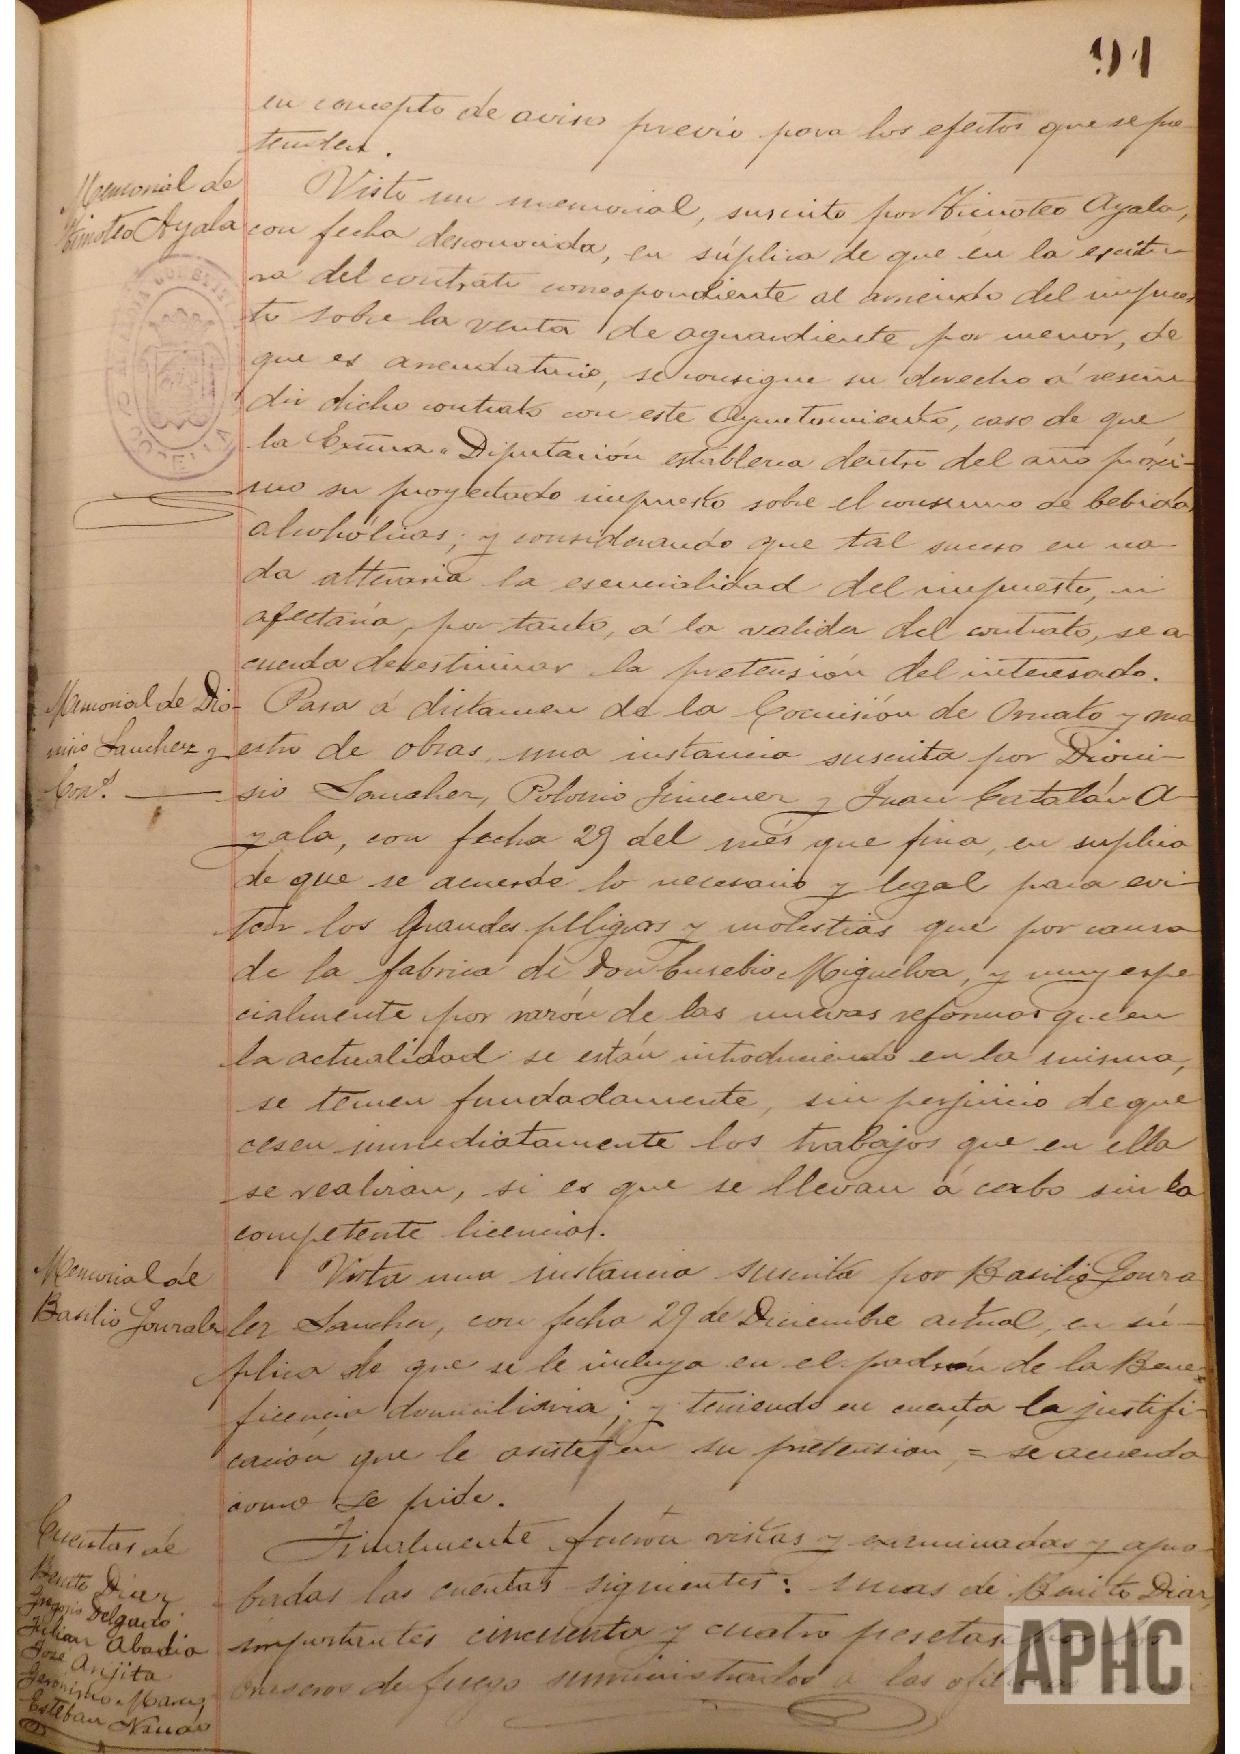 91
en concepto de aviso previo para los efectos que se pre-
tenden.
Memorial de
Timoteo Ayala
Visto un memorial, suscrito por Timoteo Ayala,
con fecha desconocida, en súplica de que en la escritu-
ra del contrato correspondiente al arriendo del impues-
to sobre la venta de aguardiente por menor, de
que es arrendatario, se consigne su derecho á rescin-
dir dicho contrato con este Ayuntamiento, caso de que
la Excma. Diputación establezca dentro del año próxi-
mo su proyectado impuesto sobre el consumo de bebidas
alcohólicas; y considerando que tal suceso en na-
da alteraria la esencialidad del impuesto, ni
afectaria, por tanto, á la validez del contrato, se a-
cuerda desestimar la pretensión del interesado.
Memorial de Dio-
nisio Sanchez y
Cons.
Pasa á dictamen de la Comisión de Ornato y ma
estro de obras, una instancia suscrita por Dioni-
sio Sanchez, Polonio Jimenez y Juan Catalán A-
yala, con fecha 29 del més que fina, en suplica
de que se acuerde lo necesario y legal para evi-
tar los grandes peligros y molestias que por causa
de la fabrica de Don Eusebio Miguelva, y muy espe
cialmente por razón de las nuevas reformas que en
la actualidad se están introduciendo en la misma,
se temen fundadamente, sin perjuicio de que
cesen inmediatamente los trabajos que en ella
se realizan, si es que se llevan á cabo sin la
competente licencia.
Memorial de
Basilio Gonzalez
Vista una instancia suscrita por Basilio Gonza
lez Sanchez, con fecha 29 de Diciembre actual, en sú-
plica de que se le incluya en el padrón de la Bene-
ficencia domiciliaria; y teniendo en cuenta la justifi-
cación que le asiste en su pretensión, = se acuerda
como se pide.
Cuentas de
Benito Diaz
Gregorio Delgado
Julian Abadia
José Anjita
Gerónimo Marqz
Esteban Navas
Finalmente fueron vistas y examinadas y apro-
badas las cuentas siguientes: unas de Benito Diaz,
importantes cincuenta y cuatro pesetas por los
braseros de fuego suministrados a las
APHC